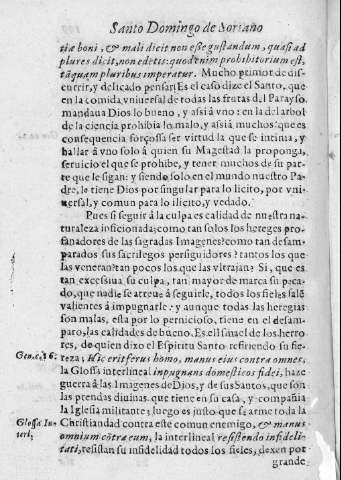 Santo Domingo de Soriano
tiæ boni, & mali dicit non esse gustandum, quasi ad
plures dicit, non edetis: quod enim prohibitorium est,
tãquam pluribus imperatur. Mucho primor de dis-
currir, y delicado pensar; Es el caso dize el Santo, que
en la comida vniuersal de todas las frutas del Parayso.
mandaua Dios lo bueno, y assi à vno: en la del arbol
de la ciencia prohibia lo malo, y assi à muchos: que es
consequencia forçossa ser virtud la que se intima, y
hallarà vno solo à quien su Magestad la proponga,
seruicio el que se prohibe, y tener muchos de su par-
te que le sigan: y siendo solo en el mundo nuestro Pa-
dre, le tiene Dios por singular para lo licito, por vni-
uersal, y comun para lo ilicito, y vedado.
Pues si seguir à la culpa es calidad de nuestra na-
turaleza inficionada; como tan solos los hereges pro-
fanadores de las sagradas Imagenes? como tan desam-
parados sus sacrilegos persiguidores? tantos los que
las veneran? tan pocos los que las vltrajan? Si, que es
tan excessiua su culpa, tan mayor de marca su peca-
do, que nadie se atreue à seguirle, todos los fieles salē
valientes à impugnarle: y aunque todas las heregias
son malas, esta por lo pernicioso, tiene en el desam-
paro, las calidades de bueno. Es el Ismael de los herro-
res, de quien dizo el Espiritu Santo refiriendo su fie-
Gen. c. 16. reza; Hic erit ferus homo, manus eius contra omnes,
la Glossa interlineal impugnans domesticos fidei, haze
guerra à las Imagenes de Dios, y de sus Santos, que son
las prendas diuinas que tiene en su casa, y compañia
la Iglesia militante; luego es justo que se arme toda la
Glossa In- Christiandad contra este comun enemigo, & manus
terl. omnium cõtra eum, la interlineal resistendo infideli-
tati, resistan su infidelidad todos los fieles, dexen por
grande